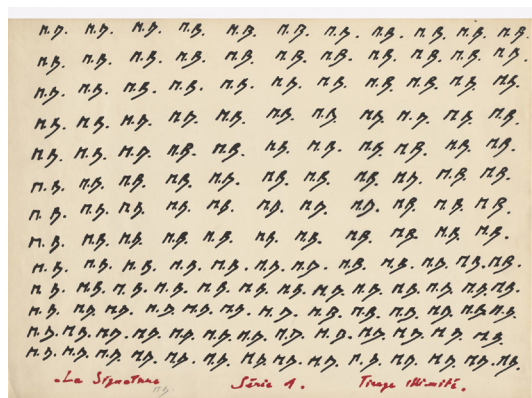 M.B. M.B. M.B. M.B. M.B. M.B. M.B. M.B. M.B. M.B. M.B.
M.B. M.B. M.B. M.B. M.B. M.B. M.B. M.B. M.B. M.B. M.B.
M.B. M.B. M.B. M.B. M.B. M.B. M.B. M.B. M.B. M.B. M.B.
M.B. M.B. M.B. M.B. M.B. M.B. M.B. M.B. M.B. M.B. M.B.
M.B. M.B. M.B. M.B. M.B. M.B. M.B. M.B. M.B. M.B. M.B.
M.B. M.B. M.B. M.B. M.B. M.B. M.B. M.B. M.B. M.B. M.B.
M.B. M.B. M.B. M.B. M.B. M.B. M.B. M.B. M.B. M.B. M.B.
M.B. M.B. M.B. M.B. M.B. M.B. M.B. M.B. M.B. M.B. M.B.
M.B. M.B. M.B. M.B. M.B. M.B. M.B. M.B. M.B. M.B. M.B. M.B. M.B.
M.B. M.B. M.B. M.B. M.B. M.B. M.B. M.B. M.B. M.B. M.B. M.B. M.B. M.B.
M.B. M.B. M.B. M.B. M.B. M.B. M.B. M.B. M.B. M.B. M.B. M.B. M.B.
M.B. M.B. M.B. M.B. M.B. M.B. M.B. M.B. M.B. M.B. M.B. M.B. M.B.
M.B. M.B. M.B. M.B. M.B. M.B. M.B. M.B. M.B. M.B. M.B. M.B. M.B. M.B.
La Signature Série 1. Tirage illimité.
M.B.